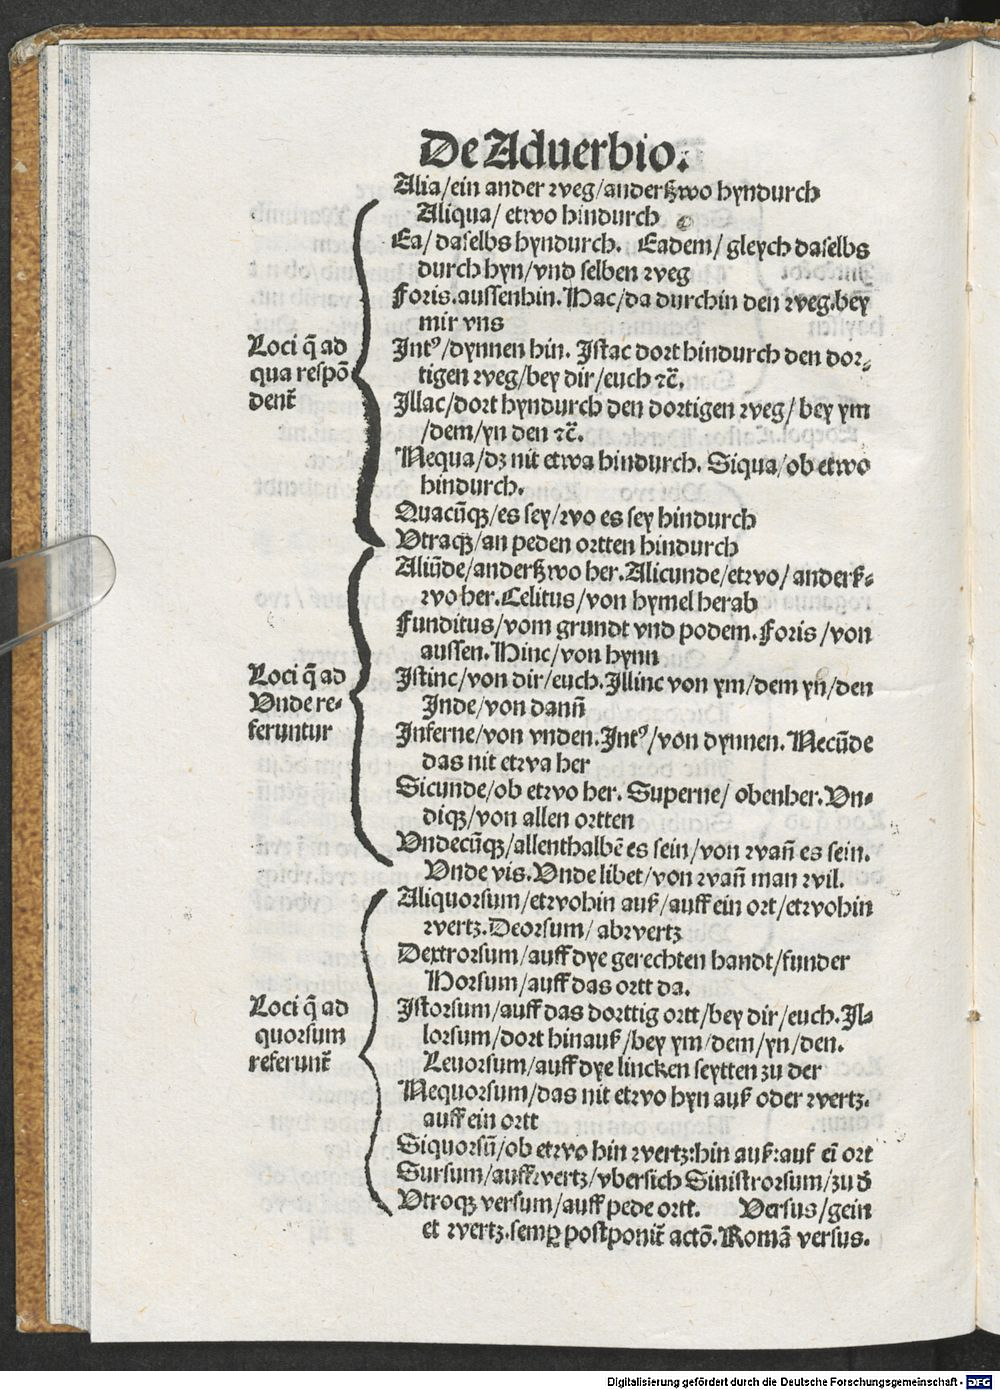 De Aduerbio.
Alia/ein ander weg/anderßwo hyndurch
Aliqua/ etwo hindurch
Ea/ daselbs hyndurch. Eadem/ gleych daselbs
durch hyn/vnd selben weg
Foris.aussenhin. Hac/da durchin den weg.bey
mir vns
Loci q̄ ad
qua respō
dent̄
Int⁹/dynnen hin. Istac dort hindurch den dor⸗
tigen weg/bey dir/euch ⁊c̄.
Illac/dort hyndurch den dortigen weg/ bey ym
/dem/yn den ⁊c̄.
Nequa/dz nit etwa hindurch. Siqua/ob etwo
hindurch.
Quacūqꝫ/es sey/wo es sey hindurch
Vtraqꝫ/an peden ortten hindurch
Aliūde/anderßwo her.Alicunde/etwo/ anderß⸗
wo her.Celitus/von hymel herab
Funditus/vom grundt vnd podem.Foris/von
aussen.Hinc/von hynn
Loci q̄ ad
Vnde re⸗
feruntur
Istinc/von dir/euch.Illinc von ym/dem yn̄/den
Inde/von dann̄
Inferne/von vnden.Int⁹/von dynnen. Necūde
das nit etwa her
Sicunde/ob etwo her. Superne/ obenher.Vn⸗
diqꝫ/von allen ortten
Vndecūqꝫ/allenthalbē es sein/von wan̄ es sein.
Vnde vis.Vnde libet/von wan̄ man wil.
Aliquorsum/etwohin auß/auff ein ort/etwohin
wertz.Deorsum/ abwertz
Dextrorsum/auff dye gerechten handt/funder
Horsum/auff das ortt da.
Loci q̄ ad
quorsum
referunt̄
Istorsum/auff das dorttig ortt/bey dir/euch.Il⸗
lorsum/dort hinauß/bey ym/dem/yn/den.
Leuorsum/auff dye lincken seytten zu der
Nequorsum/das nit etwo hyn auß oder wertz.
auff ein ortt
Siquorsū/ob etwo hin wertz:hin auß:auf eī ort
Sursum/auffwertz/vbersich Sinistrorsum/zu đ
Vtroqꝫ versum/auff pede ortt. Versus/gein
et wertz.semꝑ postponit̄ actō.Romā versus.
Digitalisierung gefördert durch die Deutsche Forschungsgemeinschaft - DFG